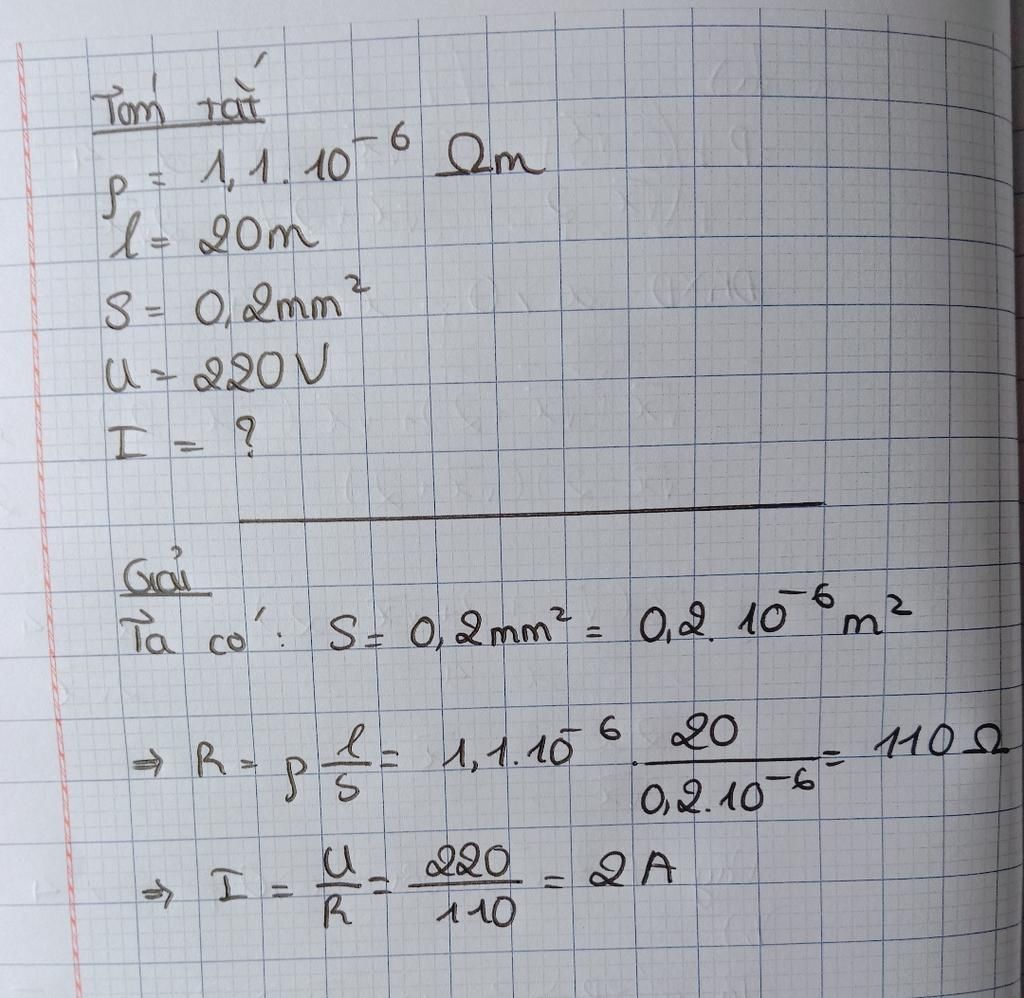 Tóm tắt
ρ = 1,1.10⁻⁶ Ωm
l = 20m
S = 0,2mm²
U = 220V
I = ?
Giải
Ta có: S = 0,2mm² = 0,2.10⁻⁶ m²
⇒ R = ρ l/S = 1,1.10⁻⁶ . 20/(0,2.10⁻⁶) = 110 Ω
⇒ I = U/R = 220/110 = 2A